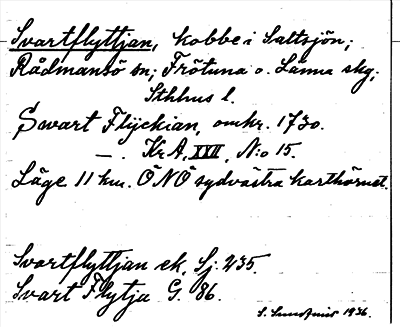 Svartflyttjan, kobbe i Saltsjön;
Rådmansö sn; Frötuna o. Länna skg;
Sthlms l.
Svart Flyckian, omkr. 1730.
—. Kr A, XVII, N:o 15.
Läge 11 km. ÖNÖ sydvästra karthörnet.
Svartflyttjan ek. Sj. 235.
Svart Flytja G. 86.
1936.